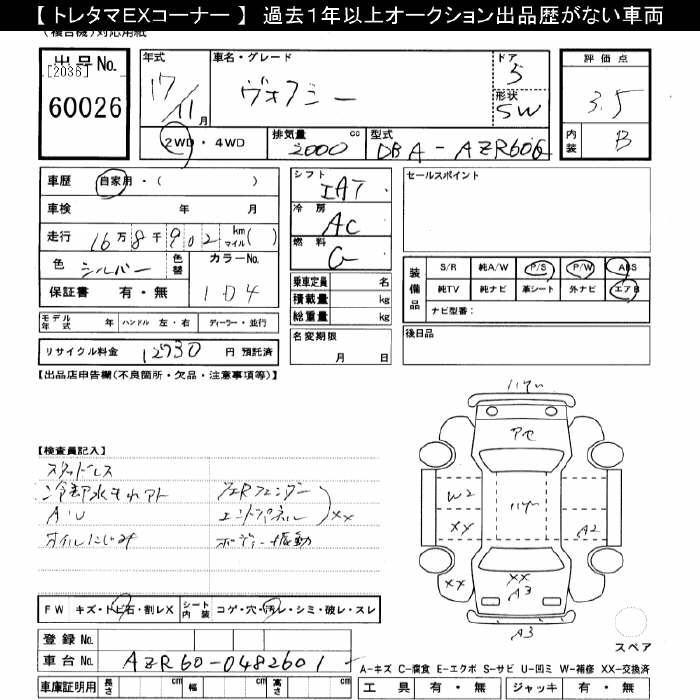 【 トレタマEXコーナー 】 過去1年以上オークション出品歴がない車両
(複合機) 対応用紙
出品No.
[2036]
60026
年式
17/11月
車名・グレード
ヴォクシー
ドア
5
形状
SW
評価点
3.5
内装
B
2WD・4WD
排気量 cc
2000
型式
DBA-AZR60G
車歴 自家用・( )
車検 年 月
走行 16万8千902 km マイル( )
色 シルバー 色替
カラーNo.
1D4
保証書 有・無
シフト
IAT
冷房
AC
燃料
G
乗車定員 名
積載量 kg
総重量 kg
セールスポイント
装備品
S/R 純A/W P/S P/W ABS
純TV 純ナビ 革シート 外ナビ エアB
ナビ型番:
モデル年式 年 ハンドル 左・右 ディーラー・並行
リサイクル料金 12730 円 預託済
名変期限
月 日
後日品
【出品店申告欄(不良箇所・欠品・注意事項等)】
アセ
W2
XY
XX
A2
XX
A3
A3
【検査員記入】
スタッドレス
冷却水もれアト
オイルにじみ
エンドパネル
XX
ボディー振動
FW キズ・トビ石・割レX
シート内装 コゲ・穴・汚レ・シミ・破レ・スレ
スペア
登録No.
車台No. AZR60-0482601
A-キズ C-腐食 E-エクボ S-サビ U-凹ミ W-補修 XX-交換済
車庫証明用 長さ cm 幅 cm 高さ cm
工具 有・無 ジャッキ 有・無